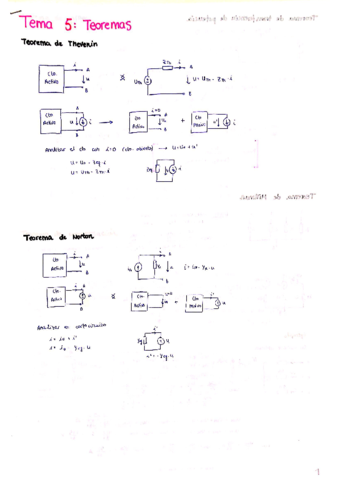 Tema 5: Teoremas
Teorema de Thevenin
Cto
Activo
i
A
u
B
Zth
i
A
Uth
u = Uth - Zth · i
B
Cto
Activo
A
u
i
B
Cto
Activo
i=0
A
B
+
Cto
Pasivo
u'
i
Analizar el cto con i=0 (cto. abierto) → u = u0 + u'
u = u0 - Zeq · i
u = Uth - Zth · i
Zeq
i
Teorema de Norton
Cto
Activo
i
A
u
B
i
A
u
B
Cto
Activo
i
A
u
B
Cto
Activo
u=0
+
Cto
Pasivo
i'
u
Analizar en cortocircuito
i = i0 + i'
Yeq · u
i'
Yeq
u
i' = - Yeq · u
1